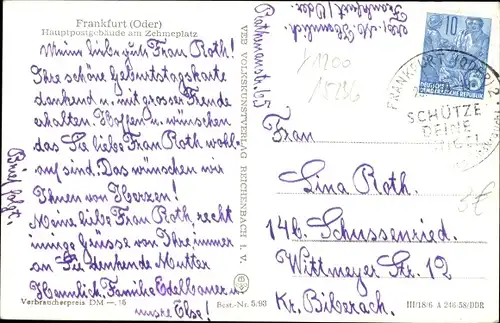 Frankfurt (Oder)
Hauptpostgebäude am Zehmeplatz
Meine liebe gute Frau Roth!
Ihre schöne Geburtstagskarte
dankend u. mit grosser Freude
erhalten. Hoffen u. wünschen
das Sie liebe Frau Roth wohl-
auf sind. Das wünschen wir
Ihnen von Herzen!
Meine liebe Frau Roth recht
innige Grüsse von Ihre immer
an Sie denkende Mutter
Familie Edelbauer u.
unsre Else!
Brief folgt.
Verbraucherpreis DM —,15
Best.-Nr. 5/93
VEB VOLKSKUNSTVERLAG REICHENBACH I. V.
Frankfurt/Oder.
10
DEUTSCHE DEMOKRATISCHE REPUBLIK
FRANKFURT (ODER) 2
SCHÜTZE
DEINE
Frau
Lina Roth.
14b. Schussenried.
Wittmeyer Str. 12
Kr. Biberach
III/18/6 A 246/58/DDR